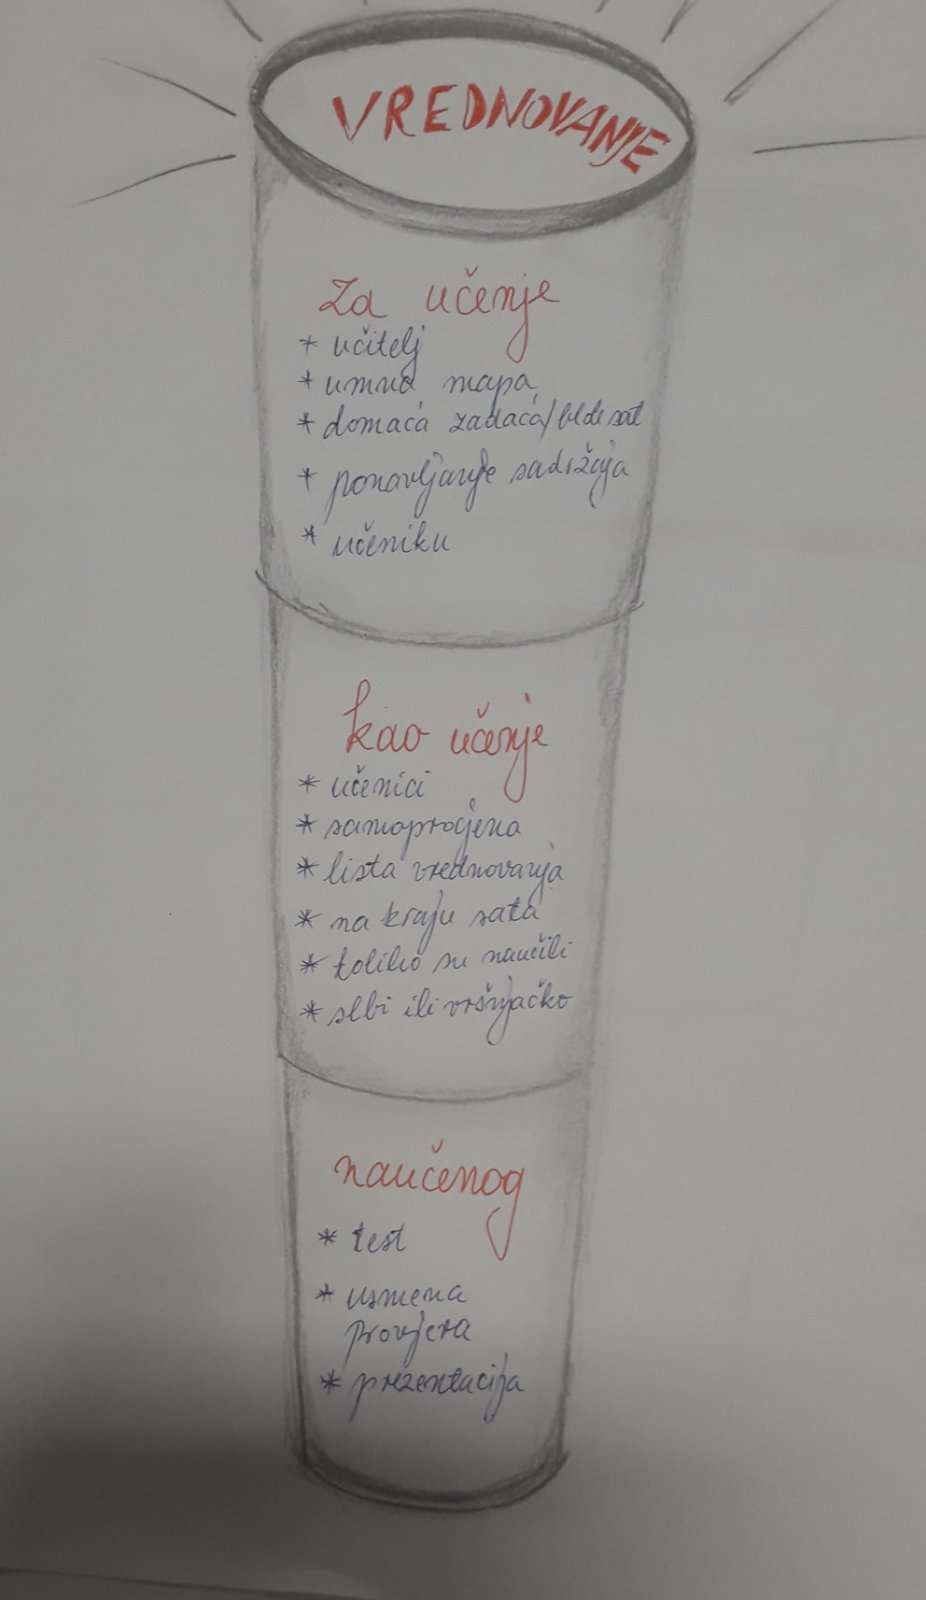 VREDNOVANJE
Za učenje
* učitelj
* umna mapa
* domaća zadaća/
* ponavljanje sadržaja
* učeniku
kao učenje
* učenici
* samoprocjena
* lista vrednovanja
* na kraju sata
* koliko su naučili
* sebi ili vršnjačko
naučenog
* test
* usmena
provjera
* prezentacija